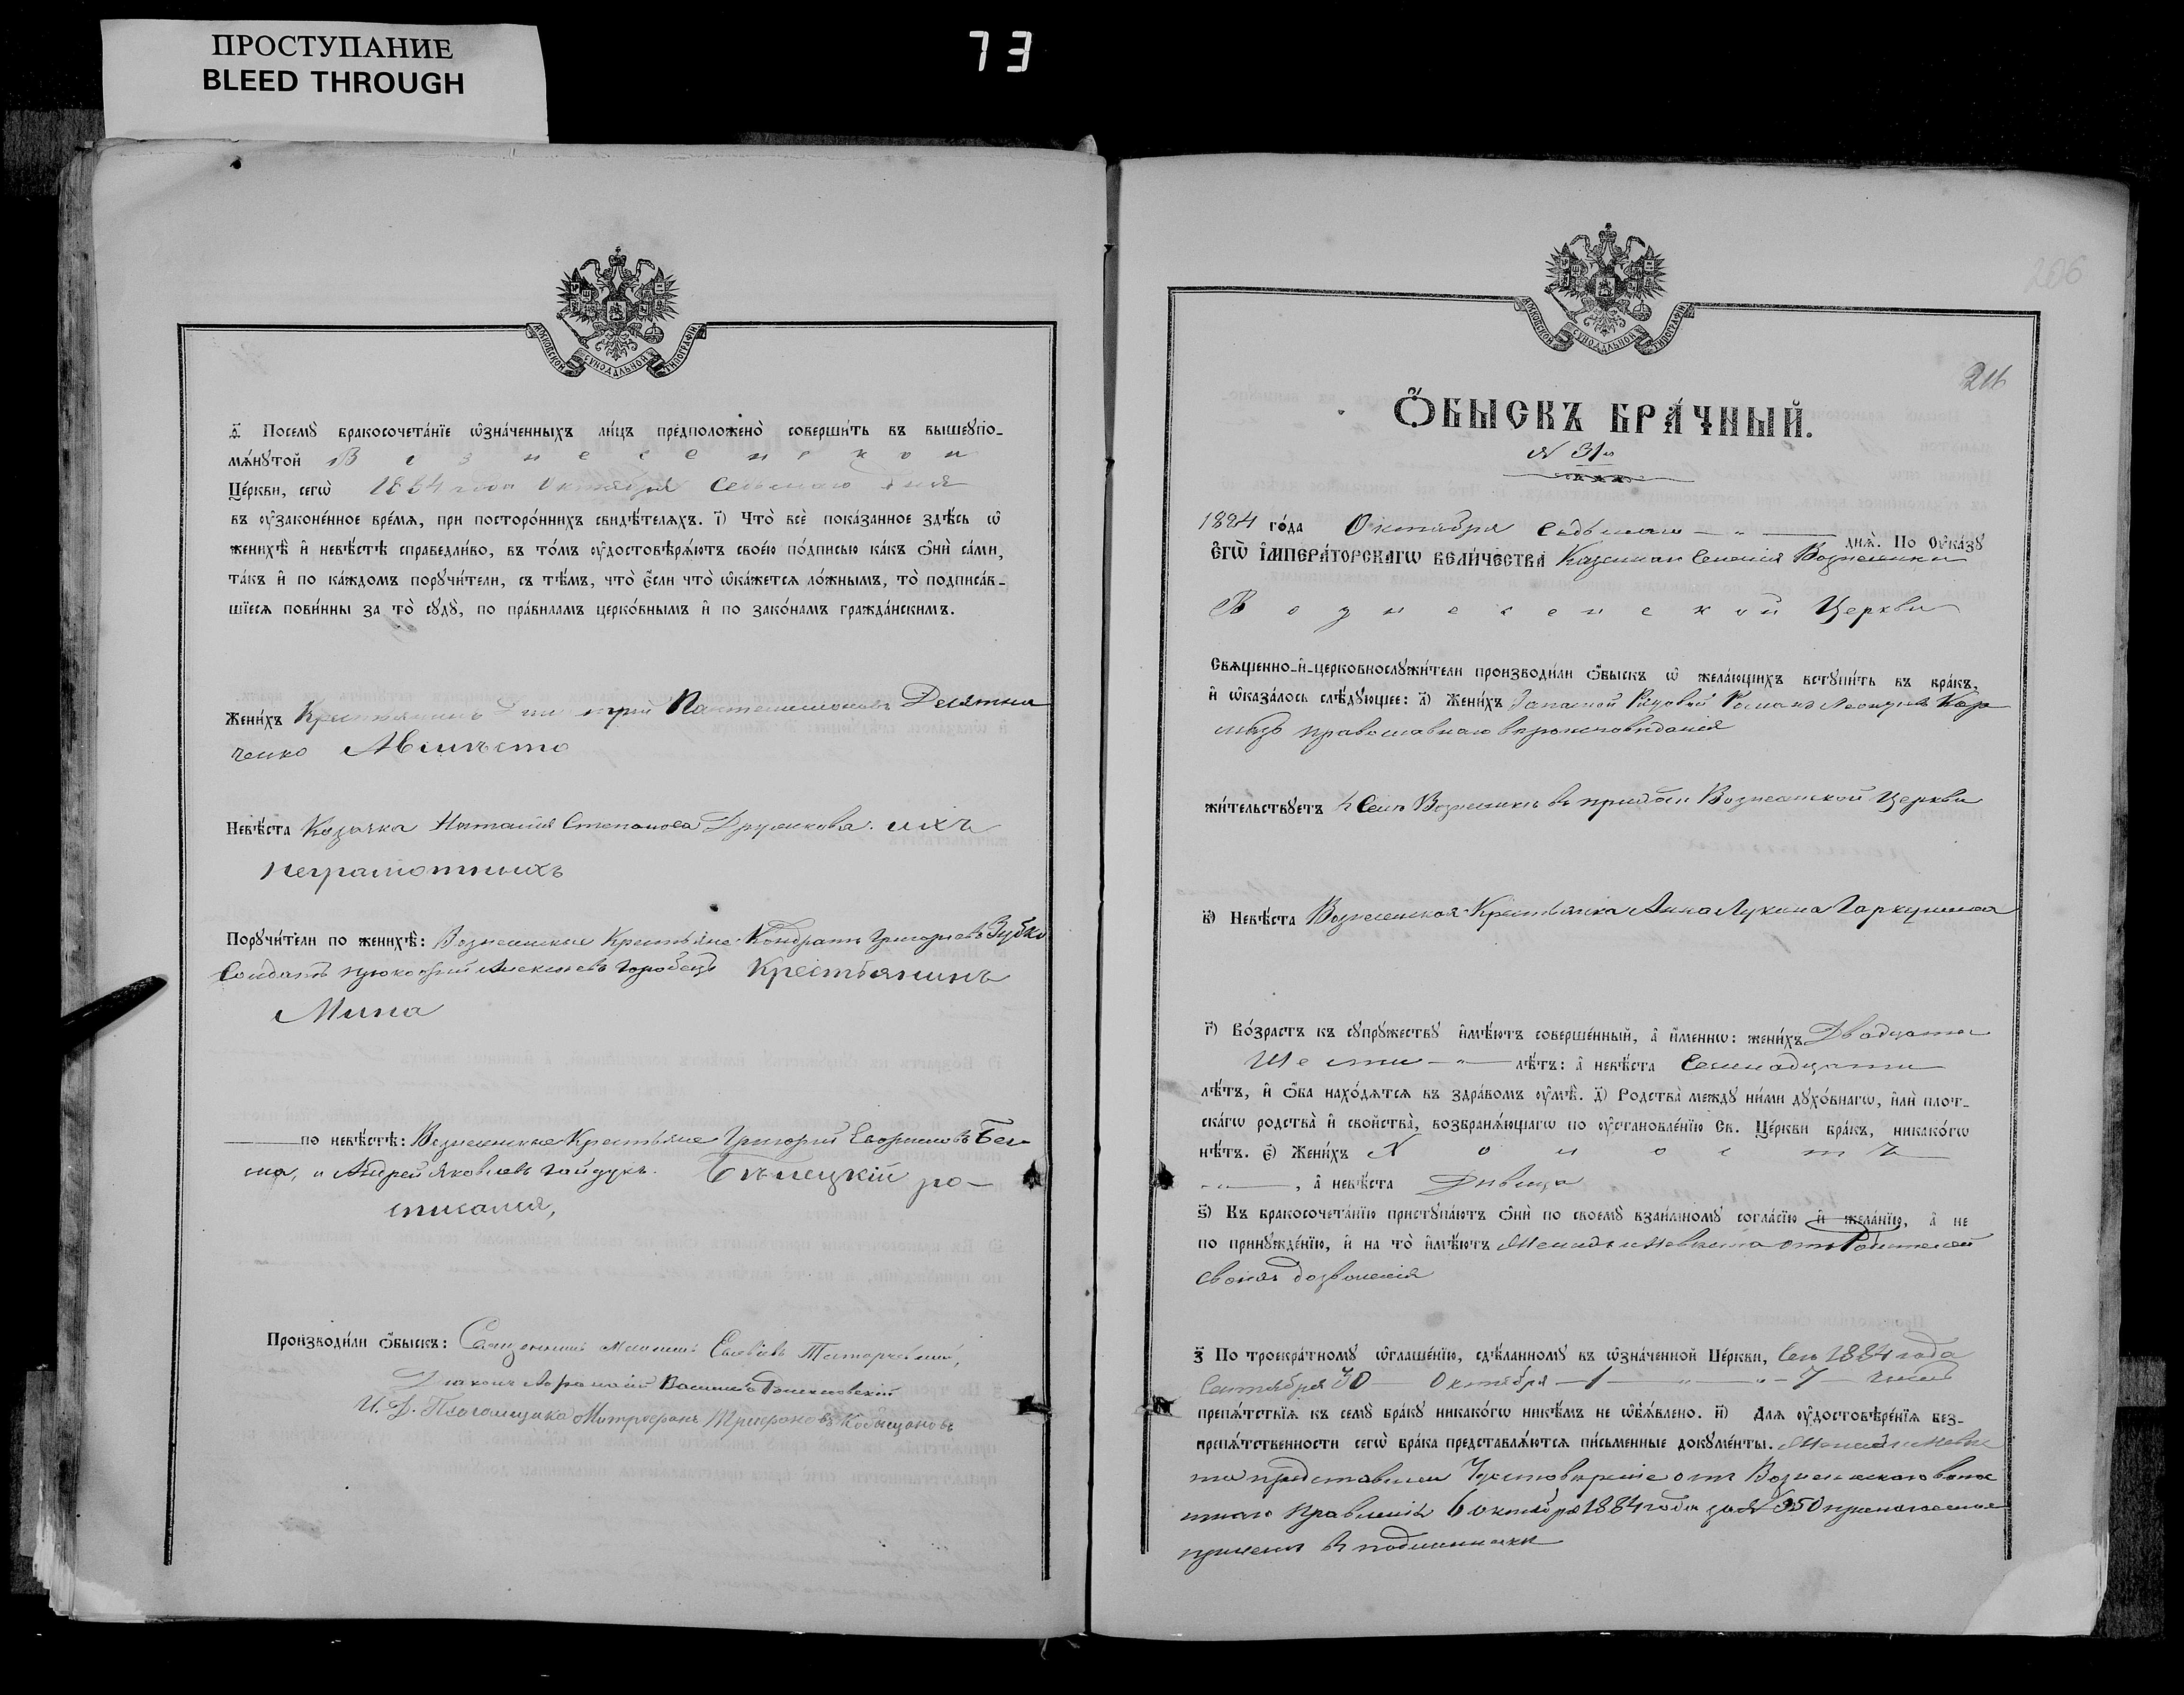 ПРОСТУПАНИЕ
BLEED THROUGH
73
МОСКОВСКОЙ СѴНОДАЛЬНОЙ ТИПОГРАФІИ
Посемꙋ бракосочета́нїе ѡ҆зна́ченныхъ ли́цъ предположено̀ соверши́ть въ вышеꙋпо-
мѧ́нꙋтой Вознесенской
Це́ркви, сегѡ̀ 1884 года Октября Седьмаго дня
въ ᲂу҆законе́нное вре́мѧ, при посторо́ннихъ свидѣ́телѧхъ. і҃) Что̀ всѐ пока́занное здѣ́сь ѡ҆
женихѣ̀ и҆ невѣ́стѣ справедли́во, въ то́мъ ᲂу҆достовѣрѧ́ютъ свое́ю по́дписью ка́къ ѻ҆нѝ са́ми,
та́къ и҆ по ка́ждомъ порꙋчи́тели, съ тѣ́мъ, что̀ є҆́сли что̀ ѡ҆ка́жетсѧ ло́жнымъ, то̀ подписа́в-
шїесѧ пови́нны за то̀ сꙋдꙋ̀, по пра́виламъ церко́внымъ и҆ по зако́намъ гражда́нскимъ.
Жени́хъ Крестьянинъ Дмитрій Пантелимоновъ Десятни
ченко Авмѣсто
Невѣ́ста Козачка Наталія Степанова ихъ
неграмотныхъ
Порꙋчи́тели по женихѣ̀: Вознесенскіе Крестьяне Кондратъ Григорьевъ Зубко
Солдатъ Прокофій Алексѣевъ Горобецъ Крестьянинъ
Мина
по невѣ́стѣ: Вознесенскіе Крестьяне Григорій
и Андрей Яковлевъ Гайдукъ. Бѣлецкій ро-
списался,
Произво́дили ѻ҆́быскъ: Священникъ
Діаконъ
И. Д. Псаломщика Митрофанъ Трифоновъ
206
216
МОСКОВСКОЙ СѴНОДАЛЬНОЙ ТИПОГРАФІИ
Ѻ҆́БЫСКЪ БРА́ЧНЫЙ.
№ 31й
1884 го́да Октября седьмаго днѧ̀. По Оу҆ка́зꙋ
Є҆ГѠ̀ І҆МПЕРА́ТОРСКАГѠ ВЕЛИ́ЧЕСТВА Казенной Селенія Вознесенки
Вознесенской Церкви
Свѧще́нно-и҆-церковнослꙋжи́тели производи́ли ѻ҆́быскъ ѡ҆ жела́ющихъ встꙋпи́ть въ бра́къ,
и҆ ѡ҆каза́лось слѣ́дꙋющее: а҃) Жени́хъ Запасной Рядовой Романъ Леонтіевъ Кор
православнаго вѣроисповѣданія
жи́тельствꙋетъ в Селѣ Вознесенки въ приходѣ Вознесенской Церкви
в҃) Невѣ́ста Вознесенская Крестьянка Анна Лукина Гаркушина
г҃) Во́зрастъ къ сꙋпрꙋ́жествꙋ и҆мѣ́ютъ соверше́нный, а҆ и҆́меннѡ: жени́хъ Двадцати
Шести лѣ́тъ: а҆ невѣ́ста Семнадцати
лѣ́тъ, и҆ ѻ҆́ба нахо́дѧтсѧ въ здра́вомъ ᲂу҆мѣ̀. д҃) Родства̀ междꙋ̀ ни́ми дꙋхо́внагѡ, и҆лѝ плот-
ска́гѡ родства̀ и҆ сво́йства̀, возбранѧ́ющагѡ по ᲂу҆становле́нїю Св. Це́ркви бра́къ, никако́гѡ
нѣ́тъ. є҃) Жени́хъ Холостъ
, а҆ невѣ́ста Дивица
ѕ҃) Къ бракосочета́нїю пристꙋпа́ютъ ѻ҆нѝ по своемꙋ̀ взаи́мномꙋ согла́сїю и҆ жела́нїю, а҆ не
по принꙋжде́нїю, и҆ на то̀ и҆мѣ́ютъ Женихъ и Невѣста отъ Родителей
своихъ дозволенія
з҃) По троекра́тномꙋ ѡ҆глаше́нїю, сдѣ́ланномꙋ въ ѡ҆зна́ченной Це́ркви, Сего 1884 года
Сентября 30 Октября 1 7 чиселъ
препѧ́тствїѧ къ семꙋ̀ бра́кꙋ никако́гѡ никѣ́мъ не ѡ҆б̾ѧ́влено. и҃) Длѧ ᲂу҆достовѣре́нїѧ без-
препѧ́тственности сегѡ̀ бра́ка представлѧ́ютсѧ пи́сьменные докꙋме́нты. Женихъ и Невѣс
та представили Удостовѣреніе отъ Вознесенскаго волос
тнаго Правленія 6 октября 1884 года за № 350 прилагаемое